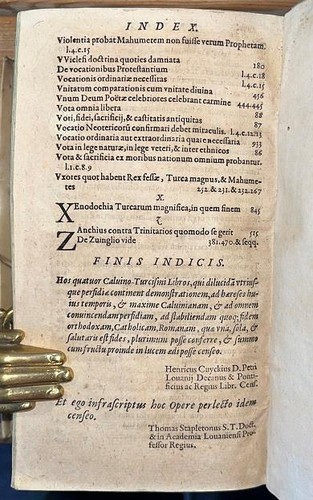 INDEX.
Violentia probat Mahumetem non fuisse verum Prophetam.
l.4.c.15
VVicleffi doctrina quoties damnata 180
De vocationibus Protestantium l.4.c.18
Vocationis ordinariæ necessitas l.4.c.15
Vnitatom comparationis cum vnitate diuina 456
Vnum Deum Poëtæ celebriores celebrant carmine 444.445
Vota omnia libera 88
Voti, fidei, sacrificij, & castitatis antiquitas 87
Vocatio Neotericorũ confirmari debet miraculis. l.4.c.12.13
Vocatio ordinaria aut extraordinaria quare necessaria 933
Vota in lege naturæ, in lege veteri, & inter ethnicos 86
Vota & sacrificia ex moribus nationum omnium probantur.
l.1.c.8.9
Vxores quot habeut Rex fessæ, Turca magnus, & Mahume-
tes 232. & 251. & 252.267
X.
Xenodochia Turcarum magnifica, in quem finem 845
Z.
Zanchius contra Trinitatios quomodo se gerit 515
De Zuinglio vide 381.470. & seqq.
FINIS INDICIS.
Hos quatuor Caluino-Turcismi Libros, qui dilucidā vtrius-
que perfidiæ continent demonstrationem, ad hæreses hu-
ius temporis, & maxime Caluinianam, & ad omnem
conuincendam perfidiam, ad stabiliendam quoq; fidem
orthodoxam, Catholicam, Romanam, quæ vna, sola, &
salutaris est fides, plurimum posse conferre, & summo
cum fructu proinde in lucem edi posse censeo.
Henricus Cuyckius D. Petri
Louanij Decanus & Ponti-
ficius ac Regius Libr. Cens.
Et ego infrascriptus hoc Opere perlecto idem
censeo.
Thomas Stapletonus S. T. Doct.
& in Academia Louaniensi Pro-
fessor Regius.